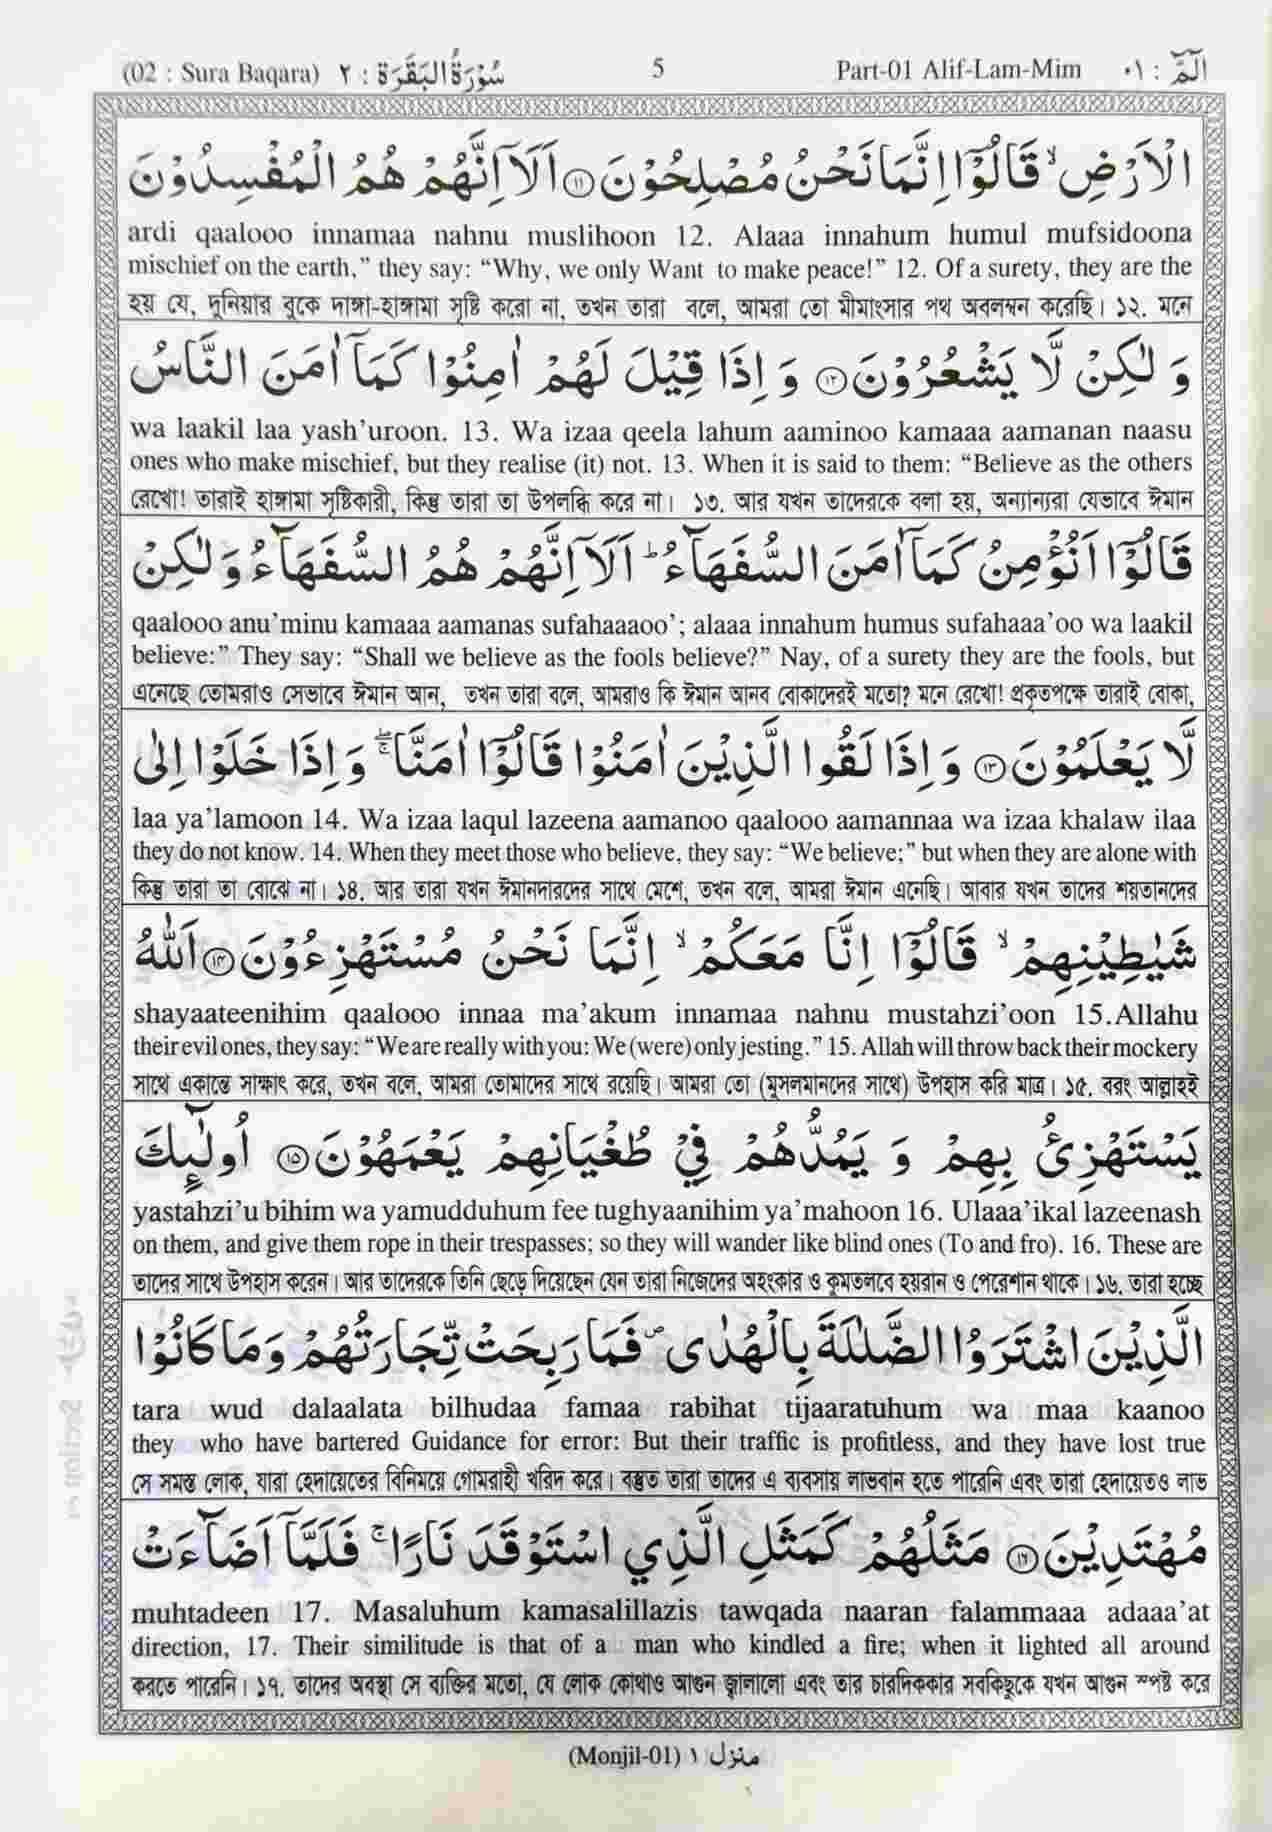 (02 : Sura Baqara) سُوْرَةُ الْبَقَرَة : ٢ 5 Part-01 Alif-Lam-Mim الٓمّٓ : ٠١
الْاَرْضِ ۙ قَالُوْۤا اِنَّمَا نَحْنُ مُصْلِحُوْنَ ⑪ اَلَاۤ اِنَّهُمْ هُمُ الْمُفْسِدُوْنَ
ardi qaalooo innamaa nahnu muslihoon 12. Alaaa innahum humul mufsidoona
mischief on the earth,” they say: “Why, we only Want to make peace!” 12. Of a surety, they are the
হয় যে, দুনিয়ার বুকে দাঙ্গা-হাঙ্গামা সৃষ্টি করো না, তখন তারা বলে, আমরা তো মীমাংসার পথ অবলম্বন করেছি। ১২. মনে
وَ لٰكِنْ لَّا يَشْعُرُوْنَ ⑫ وَ اِذَا قِيْلَ لَهُمْ اٰمِنُوْا كَمَاۤ اٰمَنَ النَّاسُ
wa laakil laa yash’uroon. 13. Wa izaa qeela lahum aaminoo kamaaa aamanan naasu
ones who make mischief, but they realise (it) not. 13. When it is said to them: “Believe as the others
রেখো! তারাই হাঙ্গামা সৃষ্টিকারী, কিন্তু তারা তা উপলব্ধি করে না। ১৩. আর যখন তাদেরকে বলা হয়, অন্যান্যরা যেভাবে ঈমান
قَالُوْۤا اَنُؤْمِنُ كَمَاۤ اٰمَنَ السُّفَهَآءُ ؕ اَلَاۤ اِنَّهُمْ هُمُ السُّفَهَآءُ وَ لٰكِنْ
qaalooo anu’minu kamaaa aamanas sufahaaaoo’; alaaa innahum humus sufahaaa’oo wa laakil
believe:” They say: “Shall we believe as the fools believe?” Nay, of a surety they are the fools, but
এনেছে তোমরাও সেভাবে ঈমান আন, তখন তারা বলে, আমরাও কি ঈমান আনব বোকাদেরই মতো? মনে রেখো! প্রকৃতপক্ষে তারাই বোকা,
لَّا يَعْلَمُوْنَ ⑬ وَ اِذَا لَقُوا الَّذِيْنَ اٰمَنُوْا قَالُوْۤا اٰمَنَّا ۚۖ وَ اِذَا خَلَوْا اِلٰى
laa ya’lamoon 14. Wa izaa laqul lazeena aamanoo qaalooo aamannaa wa izaa khalaw ilaa
they do not know. 14. When they meet those who believe, they say: “We believe;” but when they are alone with
কিন্তু তারা তা বোঝে না। ১৪. আর তারা যখন ঈমানদারদের সাথে মেশে, তখন বলে, আমরা ঈমান এনেছি। আবার যখন তাদের শয়তানদের
شَيٰطِيْنِهِمْ ۙ قَالُوْۤا اِنَّا مَعَكُمْ ۙ اِنَّمَا نَحْنُ مُسْتَهْزِءُوْنَ ⑭ اَللّٰهُ
shayaateenihim qaalooo innaa ma’akum innamaa nahnu mustahzi’oon 15.Allahu
their evil ones, they say: “We are really with you: We (were) only jesting.” 15. Allah will throw back their mockery
সাথে একান্তে সাক্ষাৎ করে, তখন বলে, আমরা তোমাদের সাথে রয়েছি। আমরা তো (মুসলমানদের সাথে) উপহাস করি মাত্র। ১৫. বরং আল্লাহই
يَسْتَهْزِئُ بِهِمْ وَ يَمُدُّهُمْ فِيْ طُغْيَانِهِمْ يَعْمَهُوْنَ ⑮ اُولٰٓئِكَ
yastahzi’u bihim wa yamudduhum fee tughyaanihim ya’mahoon 16. Ulaaa’ikal lazeenash
on them, and give them rope in their trespasses; so they will wander like blind ones (To and fro). 16. These are
তাদের সাথে উপহাস করেন। আর তাদেরকে তিনি ছেড়ে দিয়েছেন যেন তারা নিজেদের অহংকার ও কুমতলবে হয়রান ও পেরেশান থাকে। ১৬. তারা হচ্ছে
الَّذِيْنَ اشْتَرَوُا الضَّلٰلَةَ بِالْهُدٰى ۪ فَمَا رَبِحَتْ تِّجَارَتُهُمْ وَ مَا كَانُوْا
tara wud dalaalata bilhudaa famaa rabihat tijaaratuhum wa maa kaanoo
they who have bartered Guidance for error: But their traffic is profitless, and they have lost true
সে সমস্ত লোক, যারা হেদায়েতের বিনিময়ে গোমরাহী খরিদ করে। বস্তুত তারা তাদের এ ব্যবসায় লাভবান হতে পারেনি এবং তারা হেদায়েতও লাভ
مُهْتَدِيْنَ ⑯ مَثَلُهُمْ كَمَثَلِ الَّذِي اسْتَوْقَدَ نَارًا ۚ فَلَمَّاۤ اَضَآءَتْ
muhtadeen 17. Masaluhum kamasalillazis tawqada naaran falammaaa adaaa’at
direction, 17. Their similitude is that of a man who kindled a fire; when it lighted all around
করতে পারেনি। ১৭. তাদের অবস্থা সে ব্যক্তির মতো, যে লোক কোথাও আগুন জ্বালালো এবং তার চারদিককার সবকিছুকে যখন আগুন স্পষ্ট করে
(Monjil-01) منزل ١